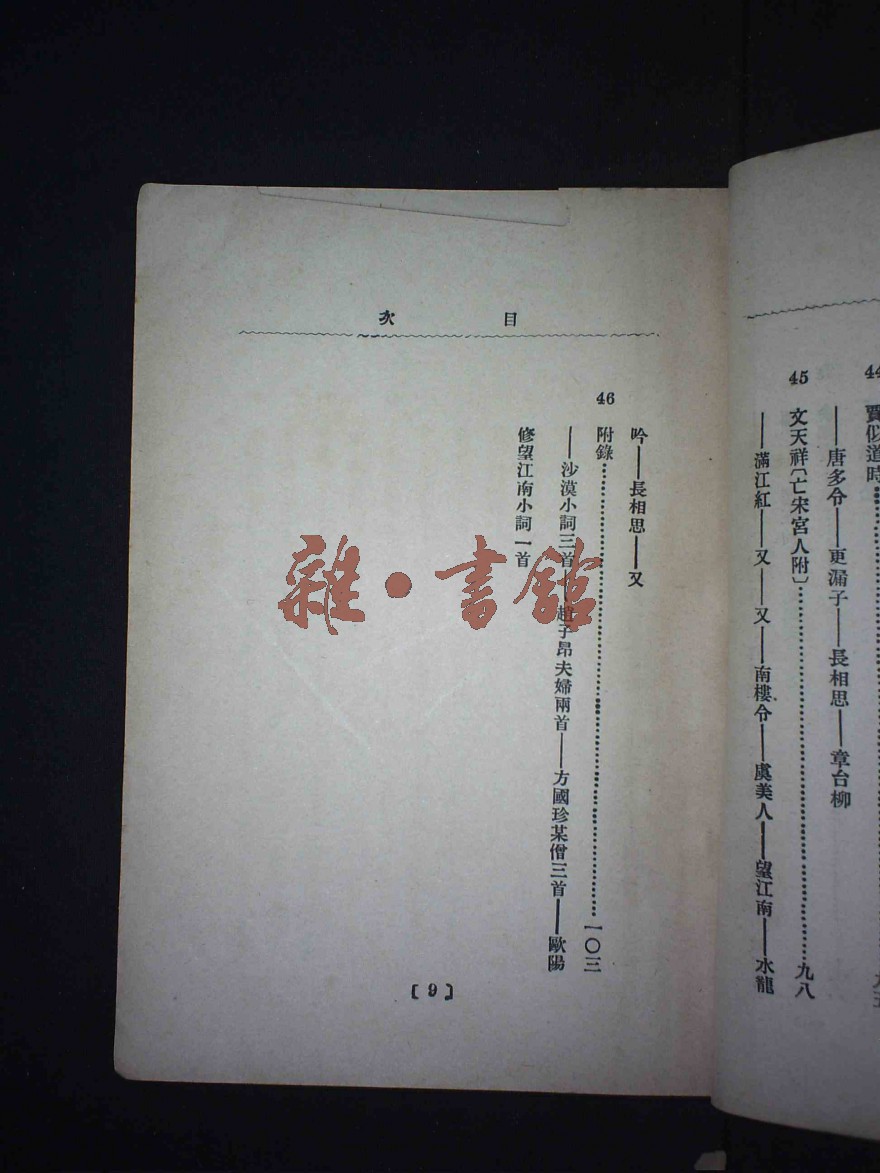 44
賈似道時
——唐多令——更漏子——長相思——章台柳
45
文天祥〔亡宋宮人附〕
九八
——滿江紅——又——又——南樓令——虞美人——望江南——水龍
目次
吟——長相思——又
46
附錄
一〇三
——沙漠小詞三首——趙子昂夫婦兩首——方國珍某僧三首——歐陽
修望江南小詞一首
〔9〕
雜·書館